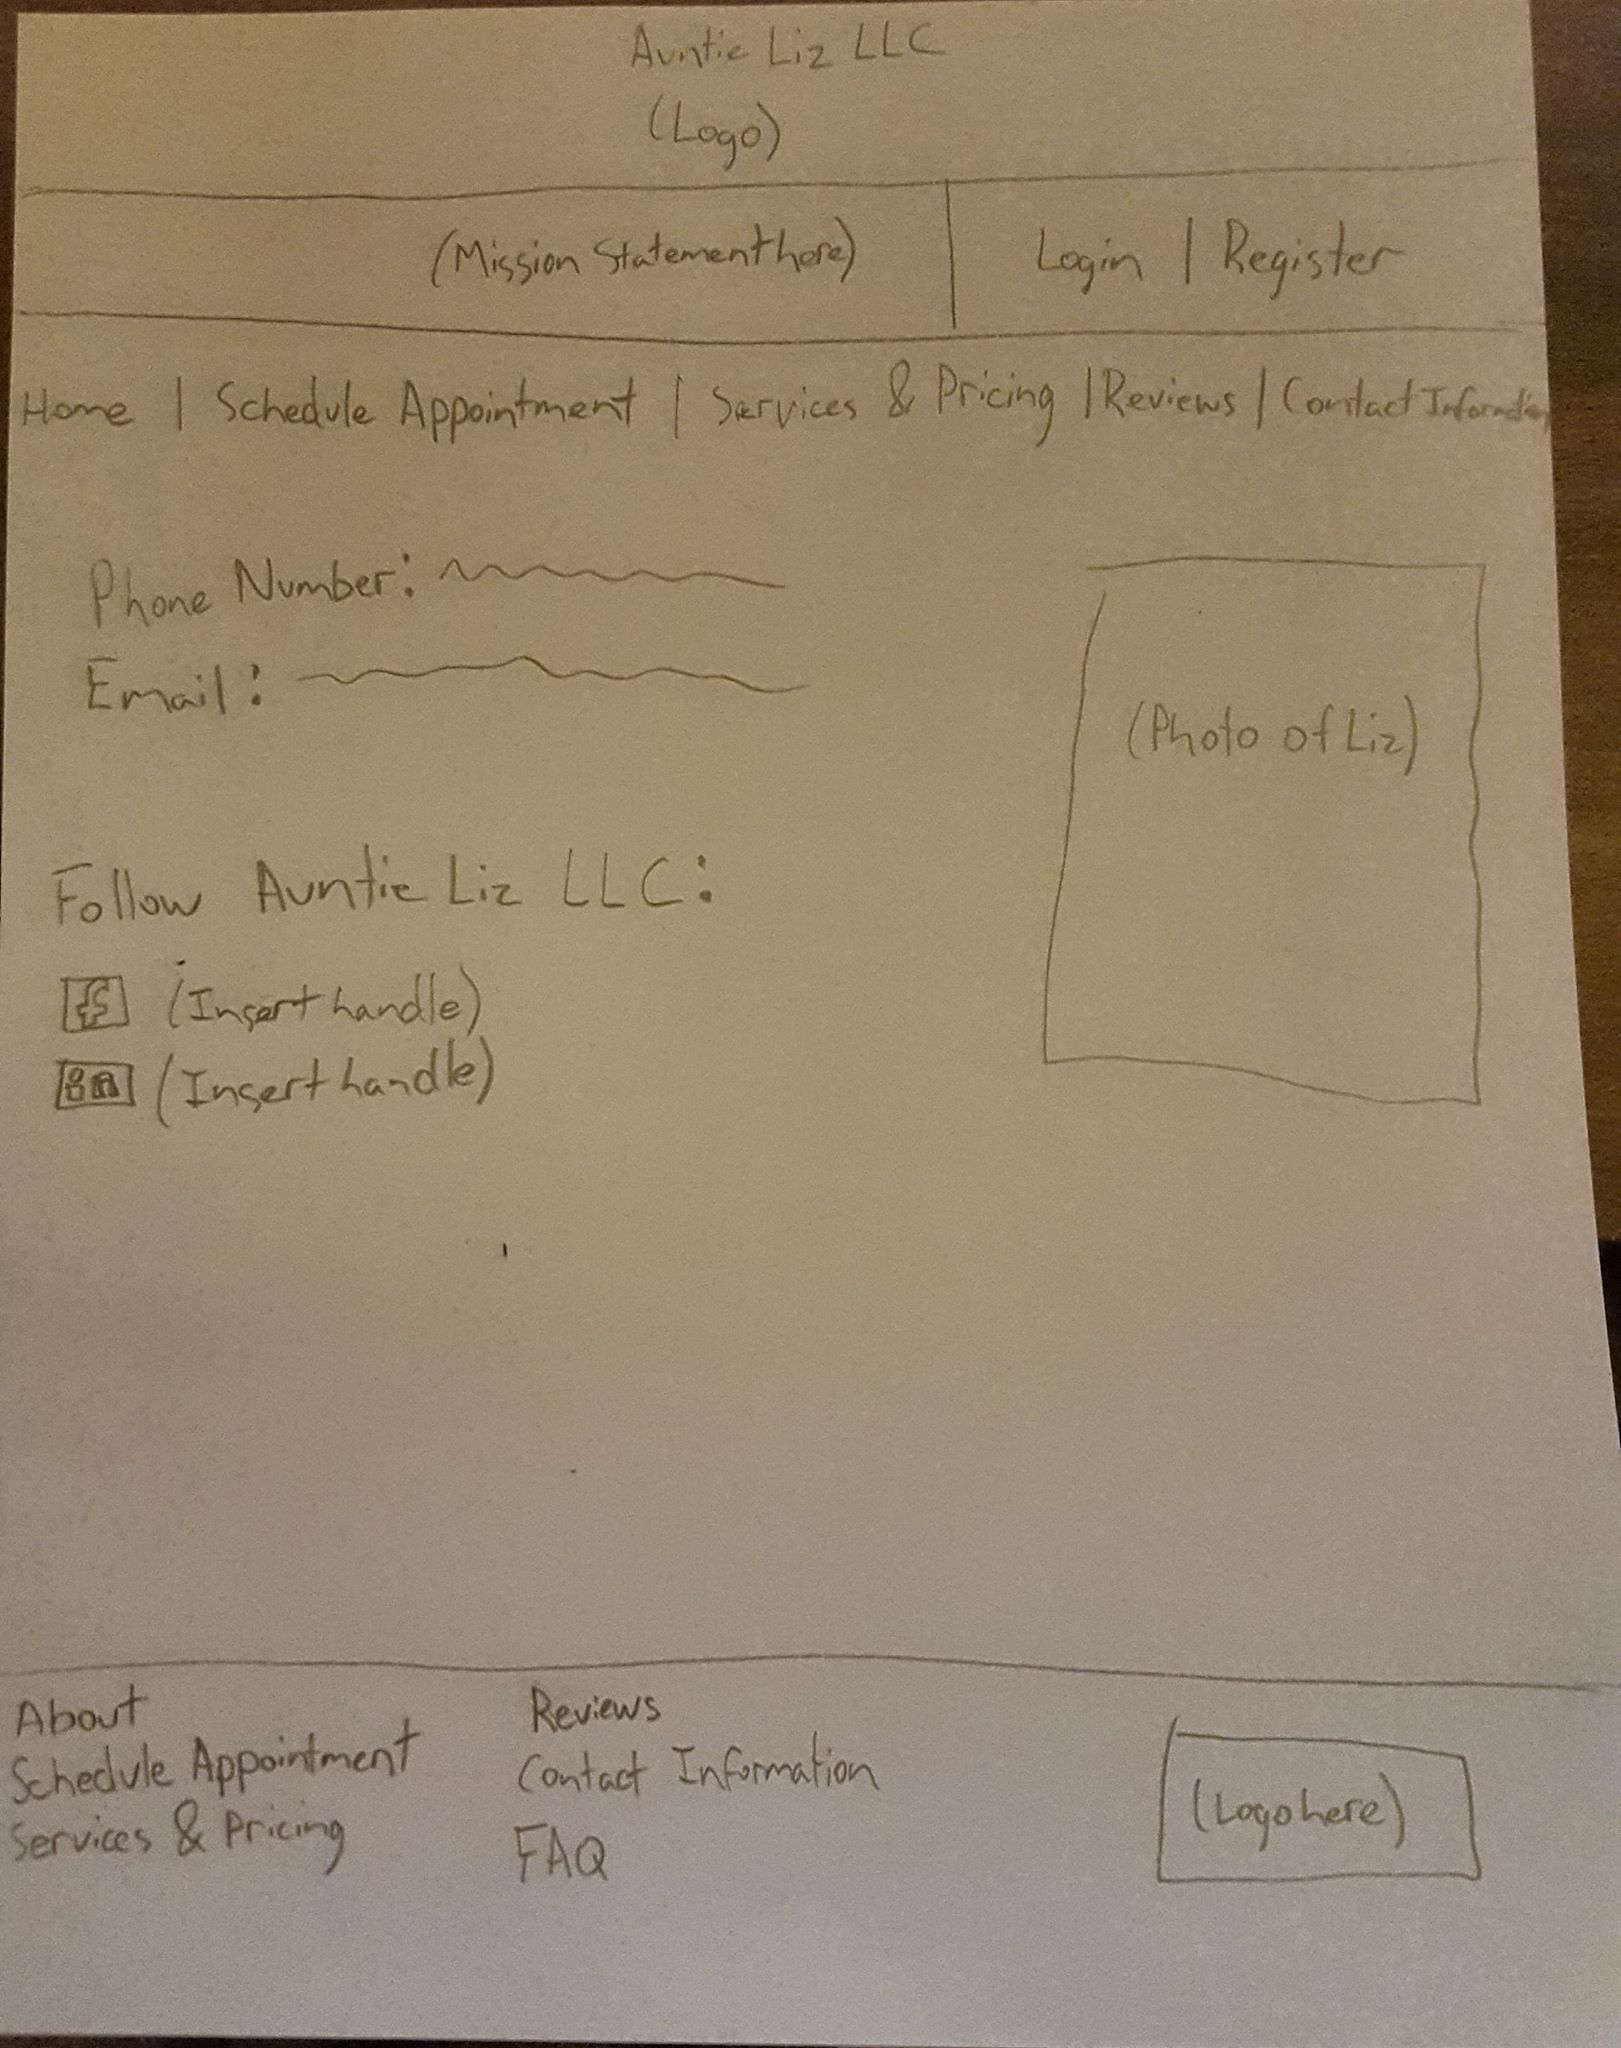 Auntie Liz LLC
(Logo)
(Mission Statement here)
Login | Register
Home | Schedule Appointment | Services & Pricing | Reviews | Contact Information
Phone Number:
Email:
(Photo of Liz)
Follow Auntie Liz LLC:
f (Insert handle)
in (Insert handle)
About
Schedule Appointment
Services & Pricing
Reviews
Contact Information
FAQ
(Logo here)